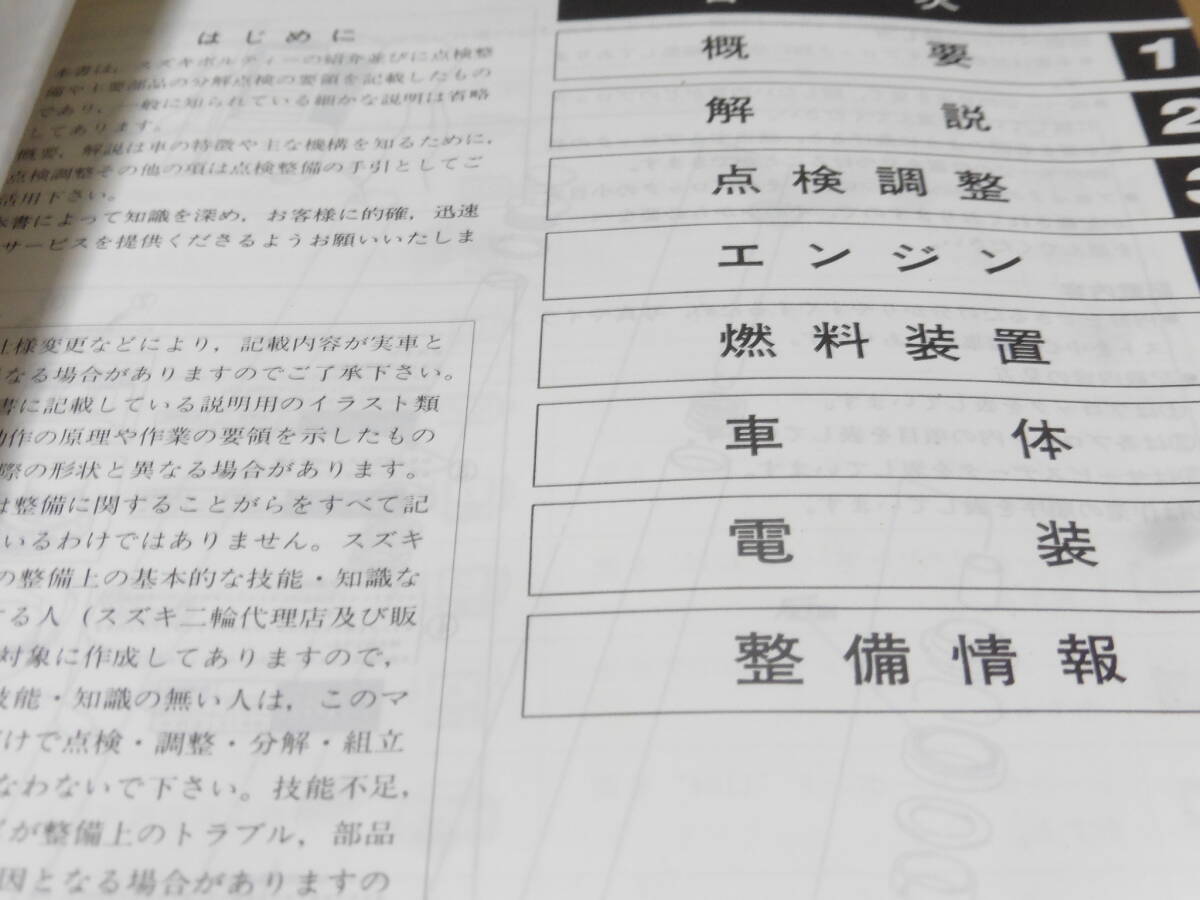 はじめに
本書は，スズキボルティーの紹介並びに点検整
備や主要部品の分解点検の要領を記載したもの
であり，一般に知られている細かな説明は省略
してあります。
概要，解説は車の特徴や主な機構を知るために，
点検調整その他の項は点検整備の手引としてご
活用下さい。
本書によって知識を深め，お客様に的確，迅速
サービスを提供くださるようお願いいたしま
仕様変更などにより，記載内容が実車と
なる場合がありますのでご了承下さい。
書に記載している説明用のイラスト類
動作の原理や作業の要領を示したもの
際の形状と異なる場合があります。
は整備に関することがらをすべて記
いるわけではありません。スズキ
の整備上の基本的な技能・知識な
する人（スズキ二輪代理店及び販
対象に作成してありますので，
技能・知識の無い人は，このマ
だけで点検・調整・分解・組立
なわないで下さい。技能不足，
が整備上のトラブル，部品
因となる場合がありますの
目次
概要 1
解説 2
点検調整 3
エンジン
燃料装置
車体
電装
整備情報